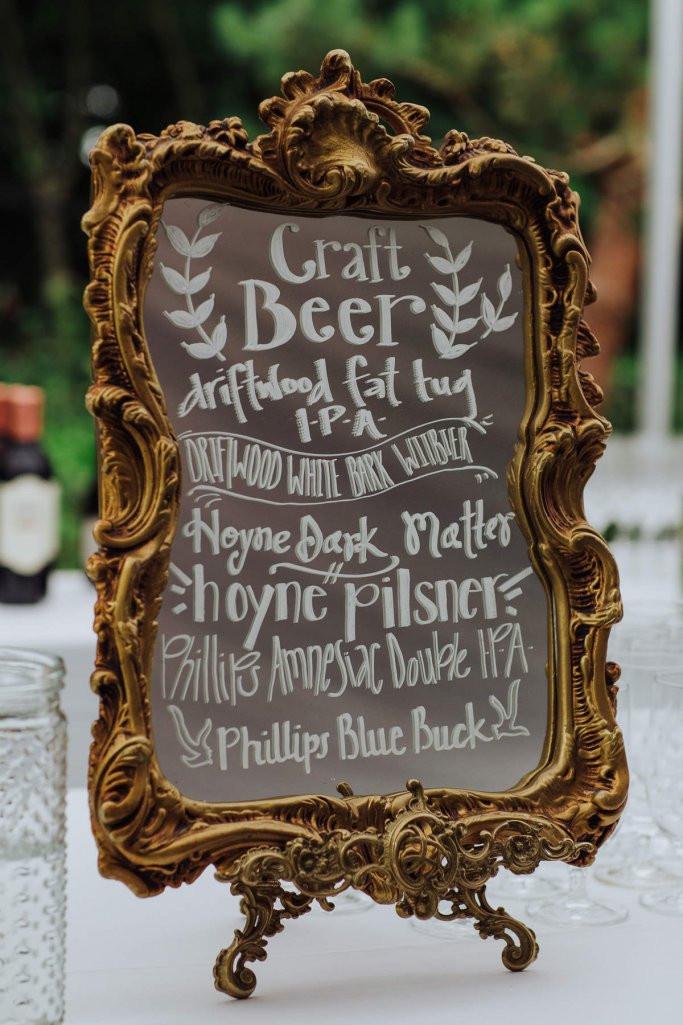 Craft
Beer
driftwood fat tug
I·P·A·
DRIFTWOOD WHITE BARK WITBIER
Hoyne Dark Matter
hoyne pilsner
Phillips Amnesiac Double I·P·A·
Phillips Blue Buck